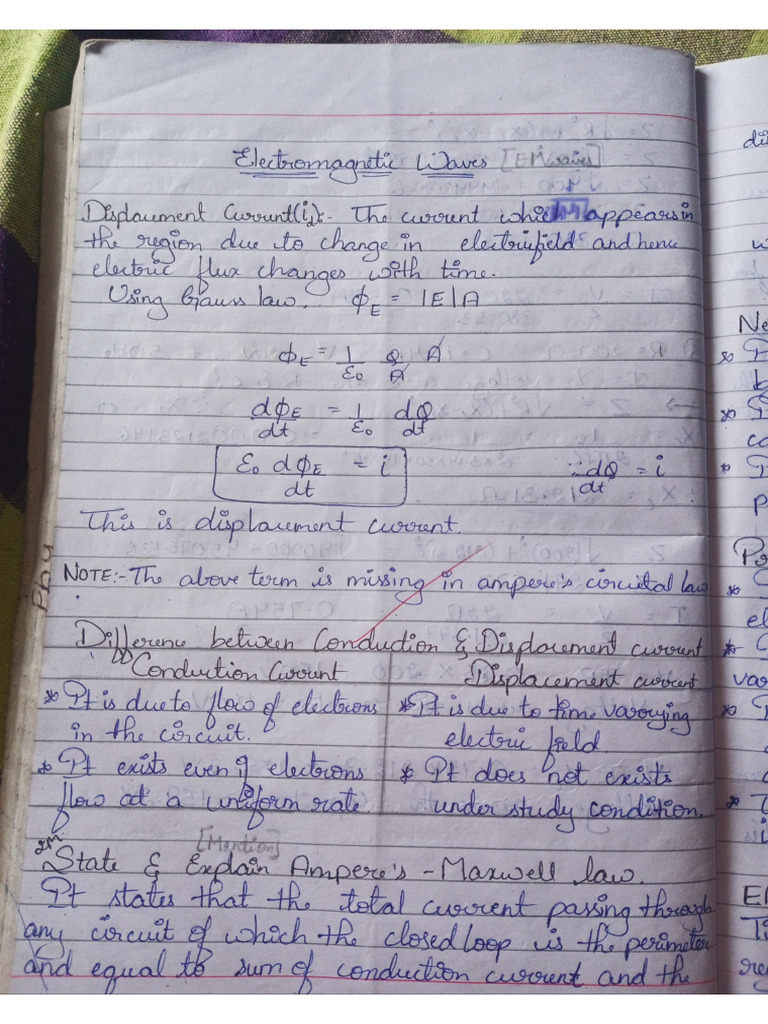 Electromagnetic Waves [EM waves]
Displacement Current(id):- The current which appears in
the region due to change in electric field and hence
electric flux changes with time.
Using Gauss law, ϕE = |E|A
ϕE = 1/ε0 Q/A A
dϕE/dt = 1/ε0 dQ/dt
ε0 dϕE/dt = i ∵ dQ/dt = i
This is displacement current.
NOTE:- The above term is missing in ampere's circuital law
Difference between Conduction & Displacement current
Conduction Current Displacement current
* It is due to flow of electrons * It is due to time varying
in the circuit. electric field.
* It exists even if electrons * It does not exists
flow at a uniform rate. under study condition.
2M [Mention]
State & Explain Ampere's - Maxwell law.
It states that the total current passing through
any circuit of which the closed loop is the perimeter
and equal to sum of conduction current and the